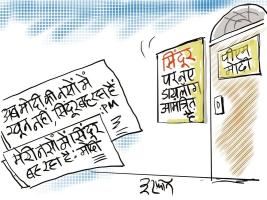 अब मोदी की नसों में
खून नहीं, सिंदूर बह रहा है
:PM
मेरी नसों में सिंदूर
बह रहा है : मोदी
सिंदूर
पर नए
डायलाग
आमंत्रित
है
पीएम
मोदी